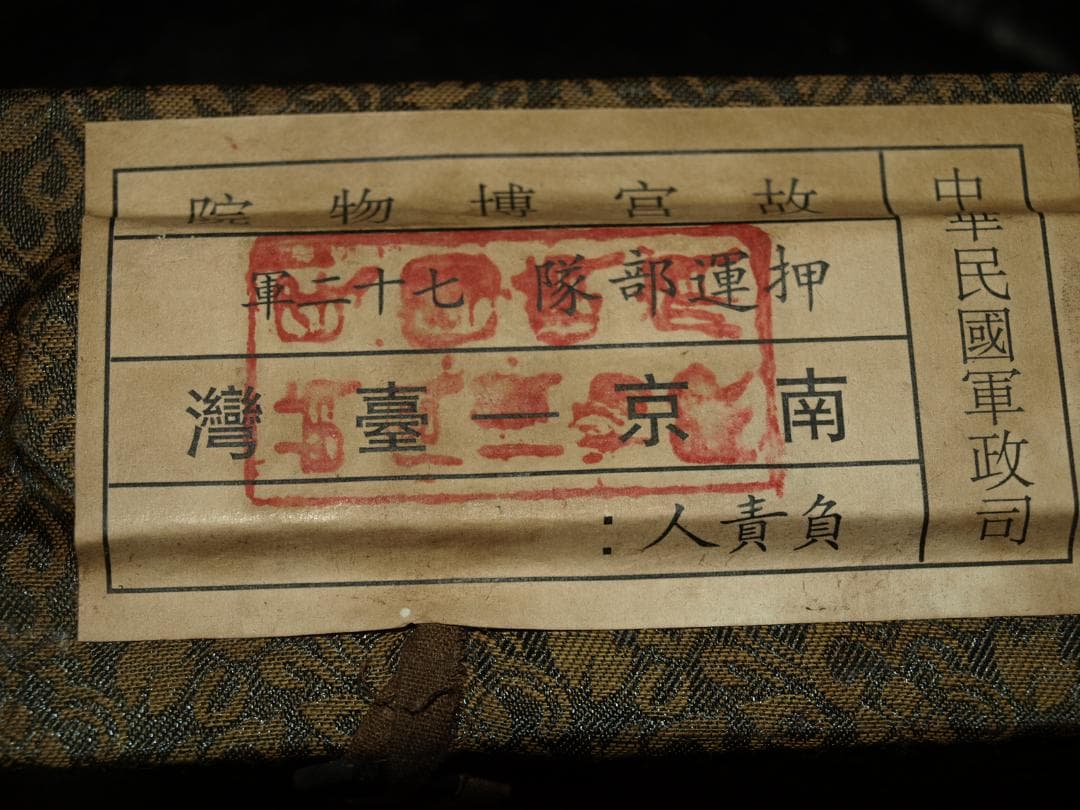 中華民國軍政司
故宮博物院
押運部隊 七十二軍
南京—臺灣
負責人：